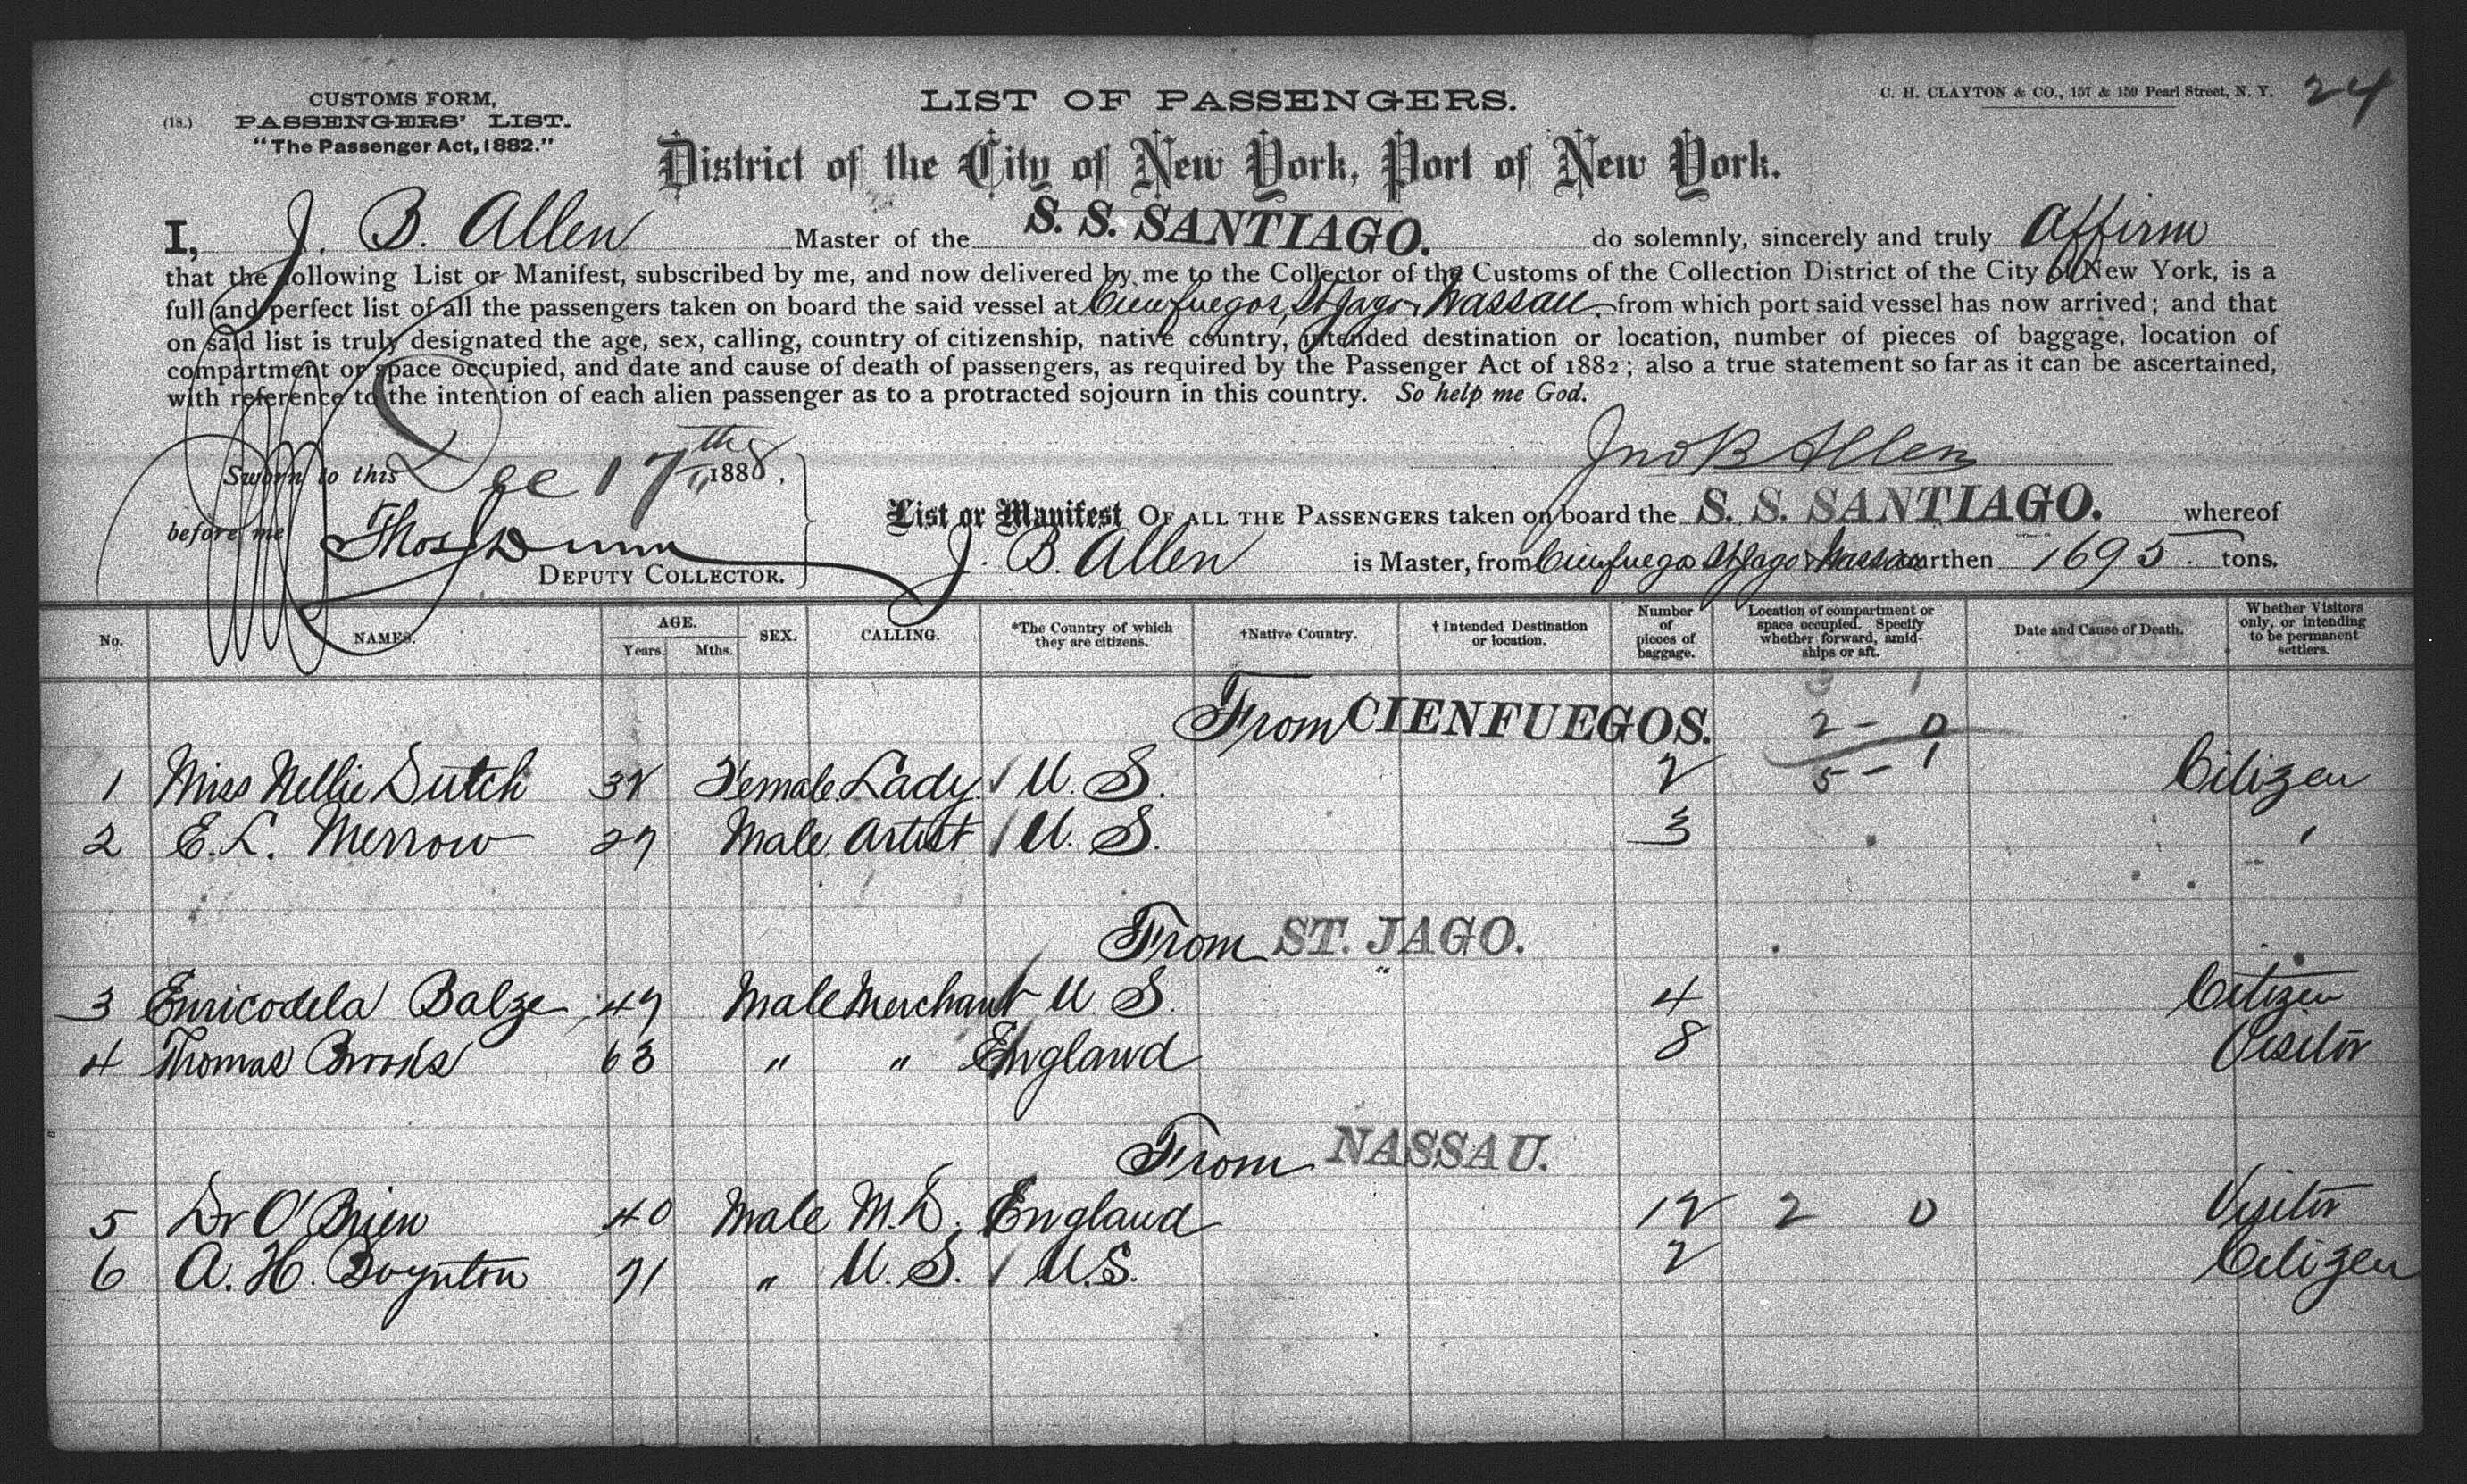 CUSTOMS FORM,
(18.) PASSENGERS' LIST.
"The Passenger Act, 1882."
LIST OF PASSENGERS.
C. H. CLAYTON & CO., 157 & 159 Pearl Street, N. Y.
24
District of the City of New York, Port of New York.
I, J. B. Allen Master of the S. S. SANTIAGO. do solemnly, sincerely and truly Affirm
that the following List or Manifest, subscribed by me, and now delivered by me to the Collector of the Customs of the Collection District of the City of New York, is a
full and perfect list of all the passengers taken on board the said vessel at Cienfuegos, St Jago & Nassau. from which port said vessel has now arrived; and that
on said list is truly designated the age, sex, calling, country of citizenship, native country, intended destination or location, number of pieces of baggage, location of
compartment or space occupied, and date and cause of death of passengers, as required by the Passenger Act of 1882; also a true statement so far as it can be ascertained,
with reference to the intention of each alien passenger as to a protracted sojourn in this country. So help me God.
Jno B Allen
Sworn to this Dec 17th 1888,
before me Thos Dunn
DEPUTY COLLECTOR.
List or Manifest OF ALL THE PASSENGERS taken on board the S. S. SANTIAGO. whereof
J. B. Allen is Master, from Cienfuegos St Jago & Nassau burthen 1695 tons.
No. NAMES. AGE. Years. Mths. SEX. CALLING. *The Country of which they are citizens. †Native Country. †Intended Destination or location. Number of pieces of baggage. Location of compartment or space occupied. Specify whether forward, amidships or aft. Date and Cause of Death. Whether Visitors only, or intending to be permanent settlers.
3 1
From CIENFUEGOS. 2 - 0
5 - 1
1 Miss Nellie Dutch 38 Female Lady U. S. 2 Citizen
2 E. L. Merrow 27 Male Artist U. S. 3 "
From ST. JAGO.
3 Enrico dela Balze 47 Male Merchant U. S. 4 Citizen
4 Thomas Brooks 63 " " England 8 Visitor
From NASSAU.
5 Dr O'Brien 40 Male M.D. England 12 2 0 Visitor
6 A. H. Boynton 71 " U. S. U.S. 2 Citizen